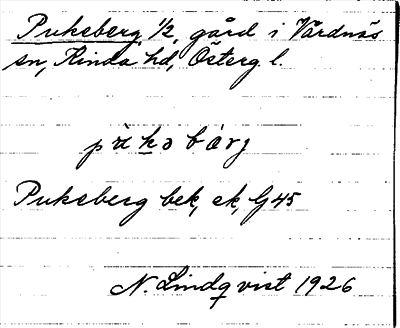 Pukeberg 1/2, gård i Vårdnäs
sn, Kinda hd, Österg l.
Pukeberg bek, ek, G45
N. Lindqvist 1926